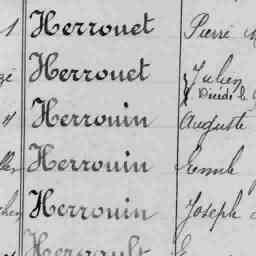 1 Herrouet Pierre
Herrouet Julien
Décédé le
Herrouin Auguste
Herrouin
Herrouin Joseph
Herroult